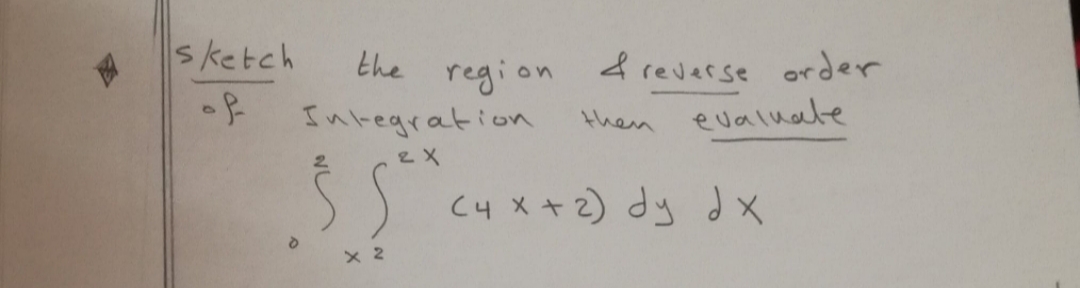 Sketch the region & reverse order
of Integration then evaluate
∫₀² ∫ₓ²^2x (4x+2) dy dx